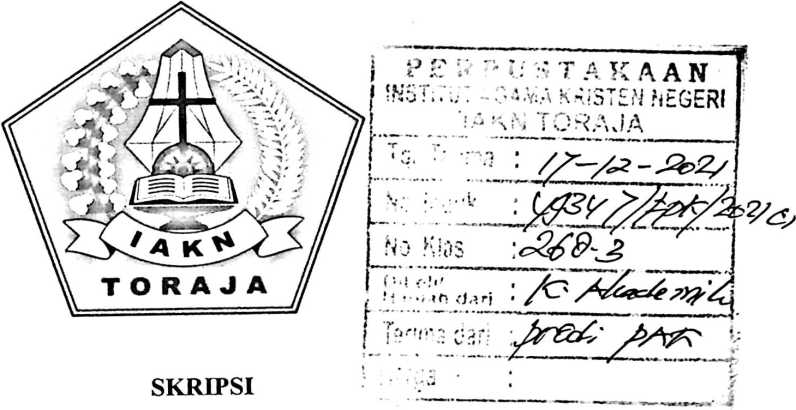 IAKN
TORAJA
PERPUSTAKAAN
INSTITUT AGAMA KRISTEN NEGERI
IAKN TORAJA
Tgl. Terima : 17-12-2021
No. Induk :
No. Klas : 268-3
: K. Akademik
Terima dari : prodi PAK
Harga :
SKRIPSI